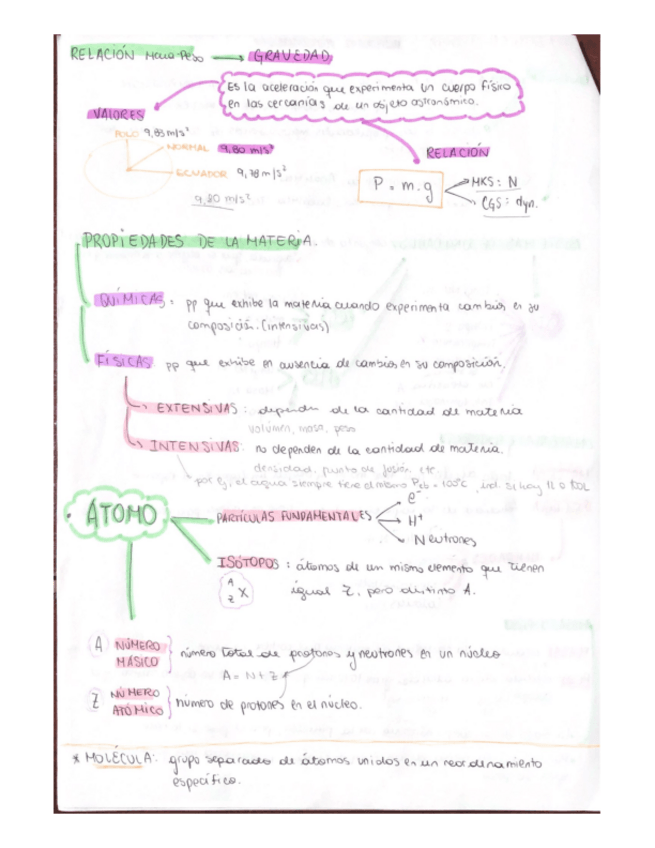 RELACIÓN Masa-Peso → GRAVEDAD
Es la aceleración que experimenta un cuerpo físico
en las cercanías de un objeto astronómico.
VALORES
POLO 9,83 m/s²
NORMAL 9,80 m/s²
ECUADOR 9,78 m/s²
9,80 m/s²
RELACIÓN
P = m.g
MKS: N
CGS: dyn.
PROPIEDADES DE LA MATERIA.
QUÍMICAS: pp que exhibe la materia cuando experimenta cambios en su
composición. (intensivas)
FÍSICAS pp que exhibe en ausencia de cambios en su composición.
EXTENSIVAS: dependen de la cantidad de materia
volumen, masa, peso
INTENSIVAS: no dependen de la cantidad de materia.
densidad, punto de fusión etc
por ej, el agua siempre tiene el mismo Peb = 100°C, ind. si hay 1L o 100L
ÁTOMO
PARTÍCULAS FUNDAMENTALES
e⁻
H⁺
Neutrones
ISÓTOPOS: átomos de un mismo elemento que tienen
igual Z, pero distinto A.
A
Z X
A NÚMERO
MÁSICO
número total de protones y neutrones en un núcleo
A = N + Z
Z NÚMERO
ATÓMICO
número de protones en el núcleo.
* MOLÉCULA: grupo separado de átomos unidos en un reordenamiento
específico.